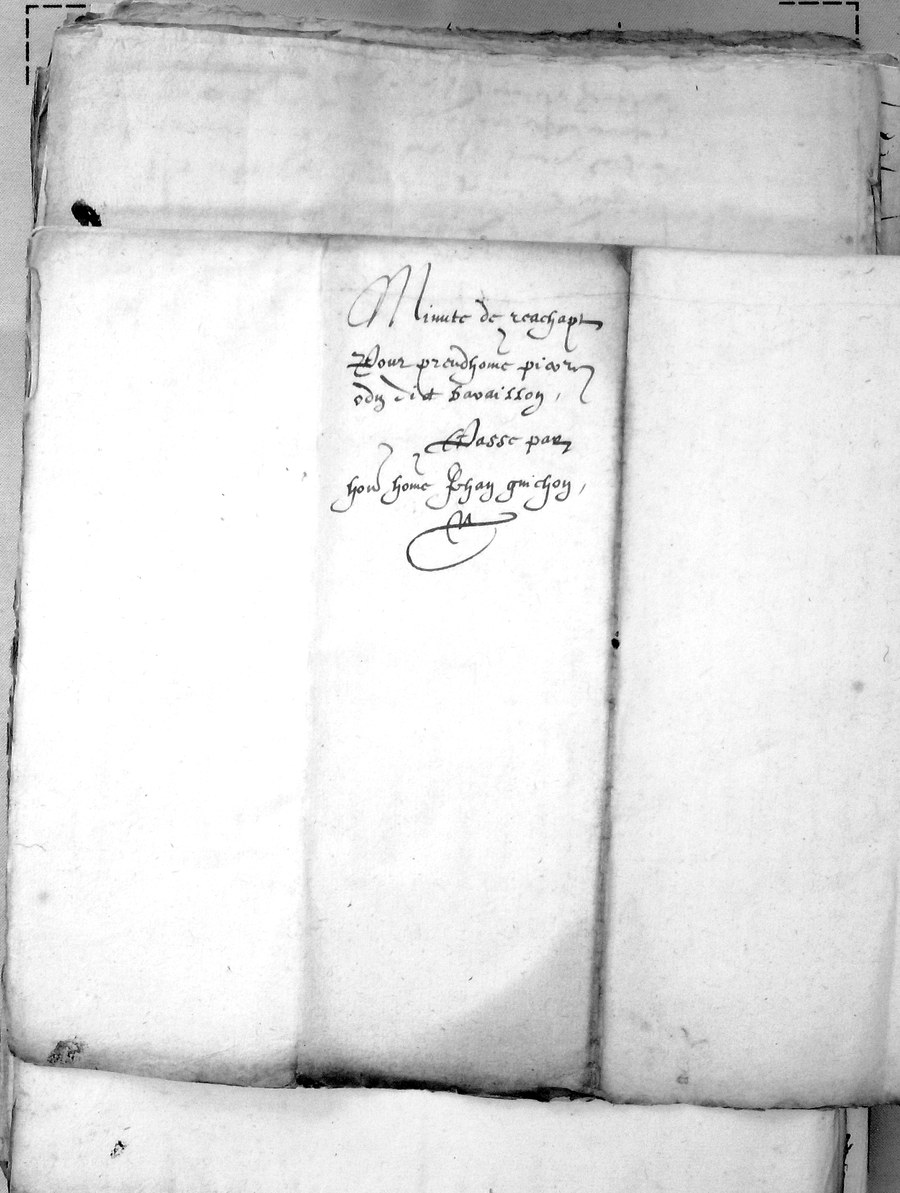 Minute de reachapt
Pour preudhome pierre
odin dict bavaillon,
Passe par
hon home Jehan guichon,